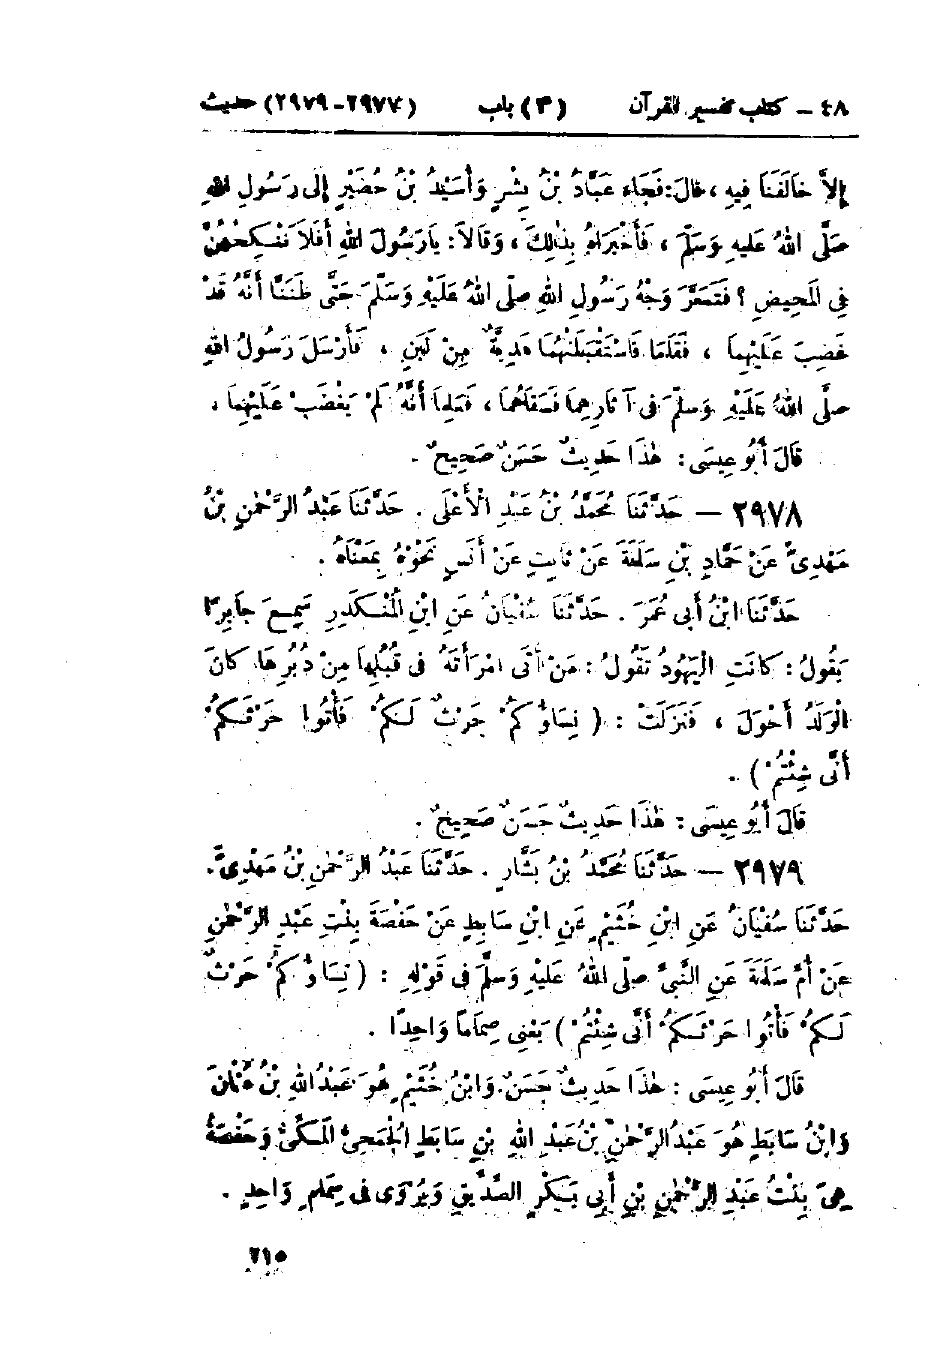 ٤٨ – كتاب تفسير القرآن (٣) باب (٢٩٧٧-٢٩٧٩) حديث
إِلاَّ خَالَفَنَا فِيهِ، قَالَ: فَجَاءَ عَبَّادُ بْنُ بِشْرٍ وَأُسَيْدُ بْنُ حُضَيْرٍ إِلَى رَسُولِ اللهِ
صَلَّى اللهُ عَلَيهِ وَسَلَّمَ، فَأَخْبَرَاهُ بِذٰلِكَ، وَقَالاَ: يَارَسُولَ اللهِ أَفَلاَ نَنْكِحُهُنَّ
فِى الْمَحِيضِ؟ فَتَمَعَّرَ وَجْهُ رَسُولِ اللهِ صلّى اللهُ عَلَيْهِ وَسَلَّمَ حَتَّى ظَنَنَّا أَنَّهُ قَدْ
غَضِبَ عَلَيْهِمَا، فَقَامَا فَاسْتَقْبَلَتْهُمَا هَدِيَّةٌ مِنْ لَبَنٍ، فَأَرْسَلَ رَسُولُ اللهِ
صلَّى اللهُ عَلَيْهِ وَسَلَّمَ فى آثَارِهِمَا فَسَقَاهُمَا، فَعَلِمَا أَنَّهُ لَمْ يَغْضَبْ عَلَيْهِمَا.
قَالَ أَبُو عِيسَى: هٰذَا حَدِيثٌ حَسَنٌ صَحِيحٌ.
٢٩٧٨ — حَدَّثَنَا مُحَمَّدُ بْنُ عَبْدِ الْأَعْلَى. حَدَّثَنَا عَبْدُ الرَّحْمٰنِ بْنُ
مَهْدِىٍّ عَنْ حَمَّادِ بْنِ سَلَمَةَ عَنْ ثَابِتٍ عَنْ أَنَسٍ نَحْوَهُ بِمَعْنَاهُ.
حَدَّثَنَا ابْنُ أَبى عُمَرَ. حَدَّثَنَا سُفْيَانُ عَنِ ابْنِ الْمُنْكَدِرِ سَمِعَ جَابِراً
يَقُولُ: كَانَتِ الْيَهُودُ تَقُولُ: مَنْ أَتَى امْرَأَتَهُ فى قُبُلِهَا مِنْ دُبُرِهَا، كَانَ
الْوَلَدُ أَحْوَلَ، فَنَزَلَتْ: (نِسَاؤُكُمْ حَرْثٌ لَكُمْ فَأْتُوا حَرْثَكُمْ
أَنَّى شِئْتُمْ).
قَالَ أَبُو عِيسَى: هٰذَا حَدِيثٌ حَسَنٌ صَحِيحٌ.
٢٩٧٩ — حَدَّثَنَا مُحَمَّدُ بْنُ بَشَّارٍ. حَدَّثَنَا عَبْدُ الرَّحْمٰنِ بْنُ مَهْدِىٍّ.
حَدَّثَنَا سُفْيَانُ عَنِ ابْنِ خُثَيْمٍ عَنِ ابْنِ سَابِطٍ عَنْ حَفْصَةَ بِنْتِ عَبْدِ الرَّحْمٰنِ
عَنْ أُمِّ سَلَمَةَ عَنِ النَّبِىِّ صلّى اللهُ عَلَيْهِ وَسَلَّمَ فى قَوْلِهِ: (نِسَاؤُكُمْ حَرْثٌ
لَكُمْ فَأْتُوا حَرْثَكُمْ أَنَّى شِئْتُمْ) يَعْنِى صِمَاماً وَاحِدًا.
قَالَ أَبُو عِيسَى: هٰذَا حَدِيثٌ حَسَنٌ. وَابْنُ خُثَيْمٍ هُوَ عَبْدُ اللهِ بْنُ عُثْمَانَ
وَابْنُ سَابِطٍ هُوَ عَبْدُ الرَّحْمٰنِ بْنُ عَبْدِ اللهِ بْنِ سَابِطٍ الْجُمَحِىُّ الْمَكِّىُّ وَحَفْصَةُ
هِىَ بِنْتُ عَبْدِ الرَّحْمٰنِ بْنِ أَبِى بَكْرٍ الصِّدِّيقِ وَيُرْوَى فى سِمَامٍ وَاحِدٍ.
٢١٥